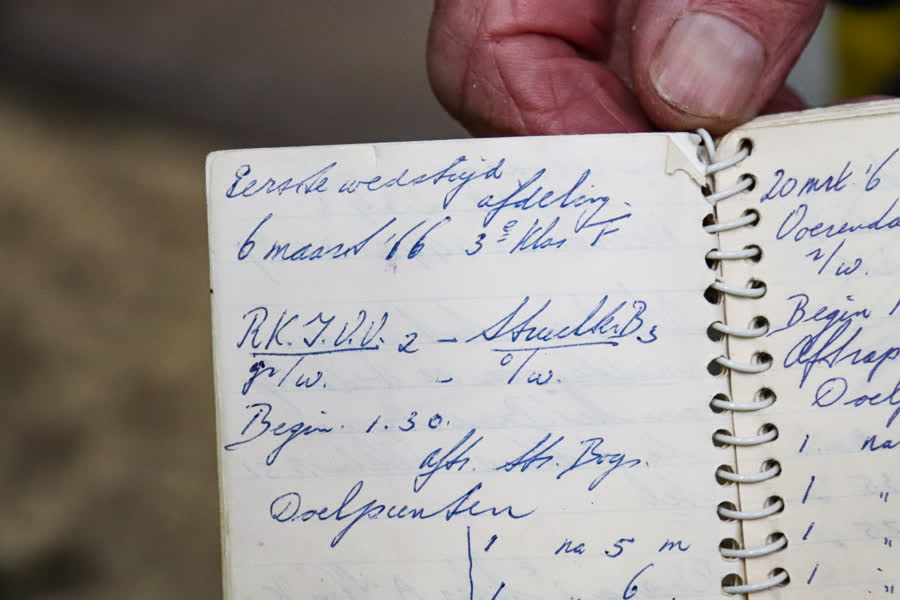 Eerste wedstrijd
afdeling.
6 maart '66 3e Klas F
R.K.J.V.V. 2 - B 3
gr/w. - o/w.
Begin. 1.30.
aftr. Str. Boys.
Doelpunten
1 na 5 m
1 6
20 mrt. '6
Voerenda
r/w.
Begin 1
Aftrap
Doelp
1 na
1 "
1 "
1 "